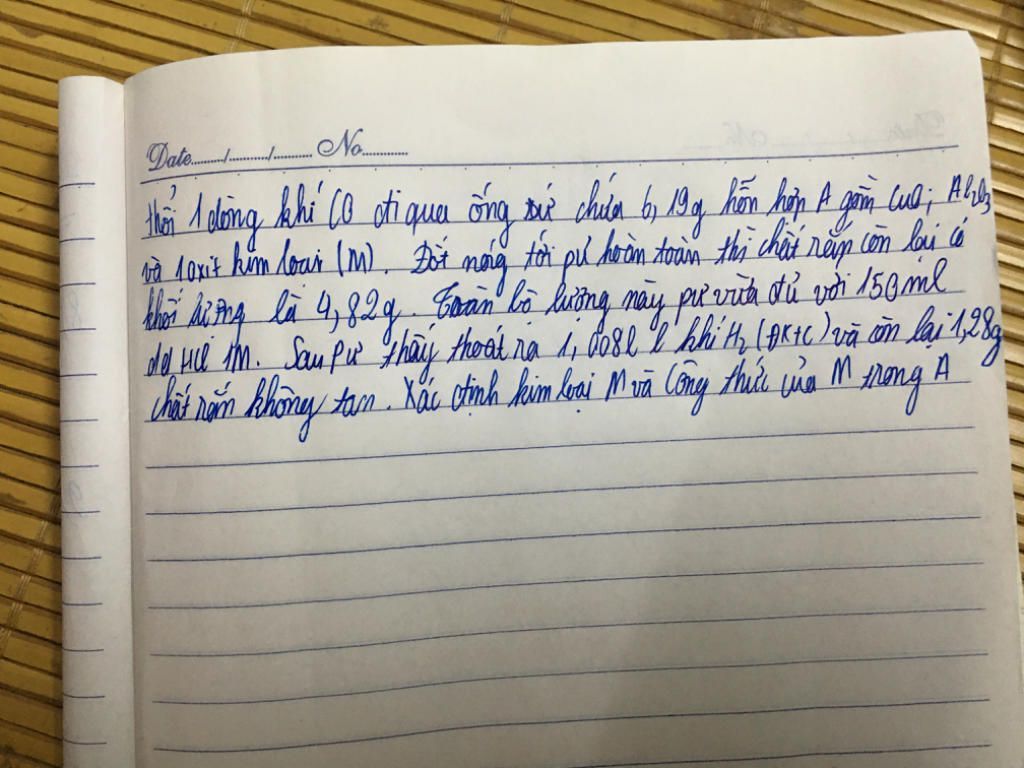 Date........./........./......... No...........
thổi 1 dòng khí CO đi qua ống sứ chứa 6,19g hỗn hợp A gồm CuO; Al2O3
và 1 oxit kim loại (M). Đốt nóng tới pứ hoàn toàn thì chất rắn còn lại có
khối lượng là 4,82g. Toàn bộ lượng này pư vừa đủ với 150ml
dd HCl 1M. Sau pư thấy thoát ra 1,008l l khí H2 (ĐKtC) và còn lại 1,28g
chất rắn không tan. Xác định kim loại M và Công thức của M trong A